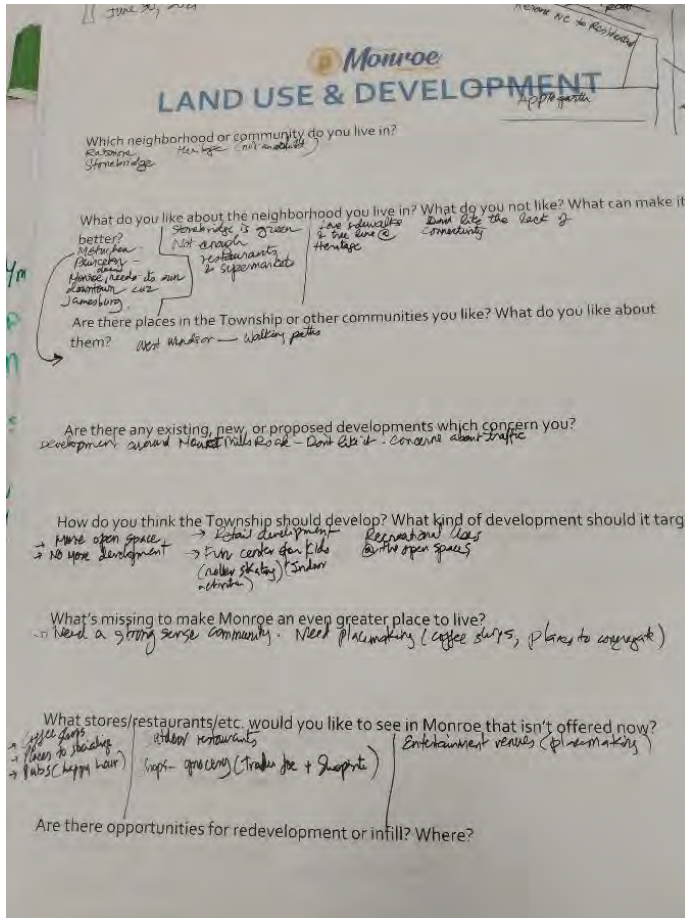 June 30, 2021
Rezone NC to Residential
Monroe
LAND USE & DEVELOPMENT
Applegarth
Which neighborhood or community do you live in?
Heritage
Stonebridge
What do you like about the neighborhood you live in? What do you not like? What can make it
better?
Metuchen
Princeton -
Monroe needs its own
downtown
Jamesburg.
Stonebridge is green
Not enough
restaurants
& supermarket
Love sidewalks
& tree line @
Heritage
Dont like the lack of
connectivity
Are there places in the Township or other communities you like? What do you like about
them?
West Windsor — Walking paths
Are there any existing, new, or proposed developments which concern you?
Development around Mills Road - Dont like it. Concerns about traffic
How do you think the Township should develop? What kind of development should it targ
→ More open space
→ No more development
→ Retail development
→ Fun center for kids
(roller skating) + Indoor
activities)
Recreational Uses
@ the open spaces
What's missing to make Monroe an even greater place to live?
Need a strong sense community. Need placemaking (coffee shops, places to congregate)
What stores/restaurants/etc. would you like to see in Monroe that isn't offered now?
→ Places to socialize
→ Pubs (happy hour)
restaurants
grocery (Trader Joe + Shoprite)
Entertainment venues (placemaking)
Are there opportunities for redevelopment or infill? Where?